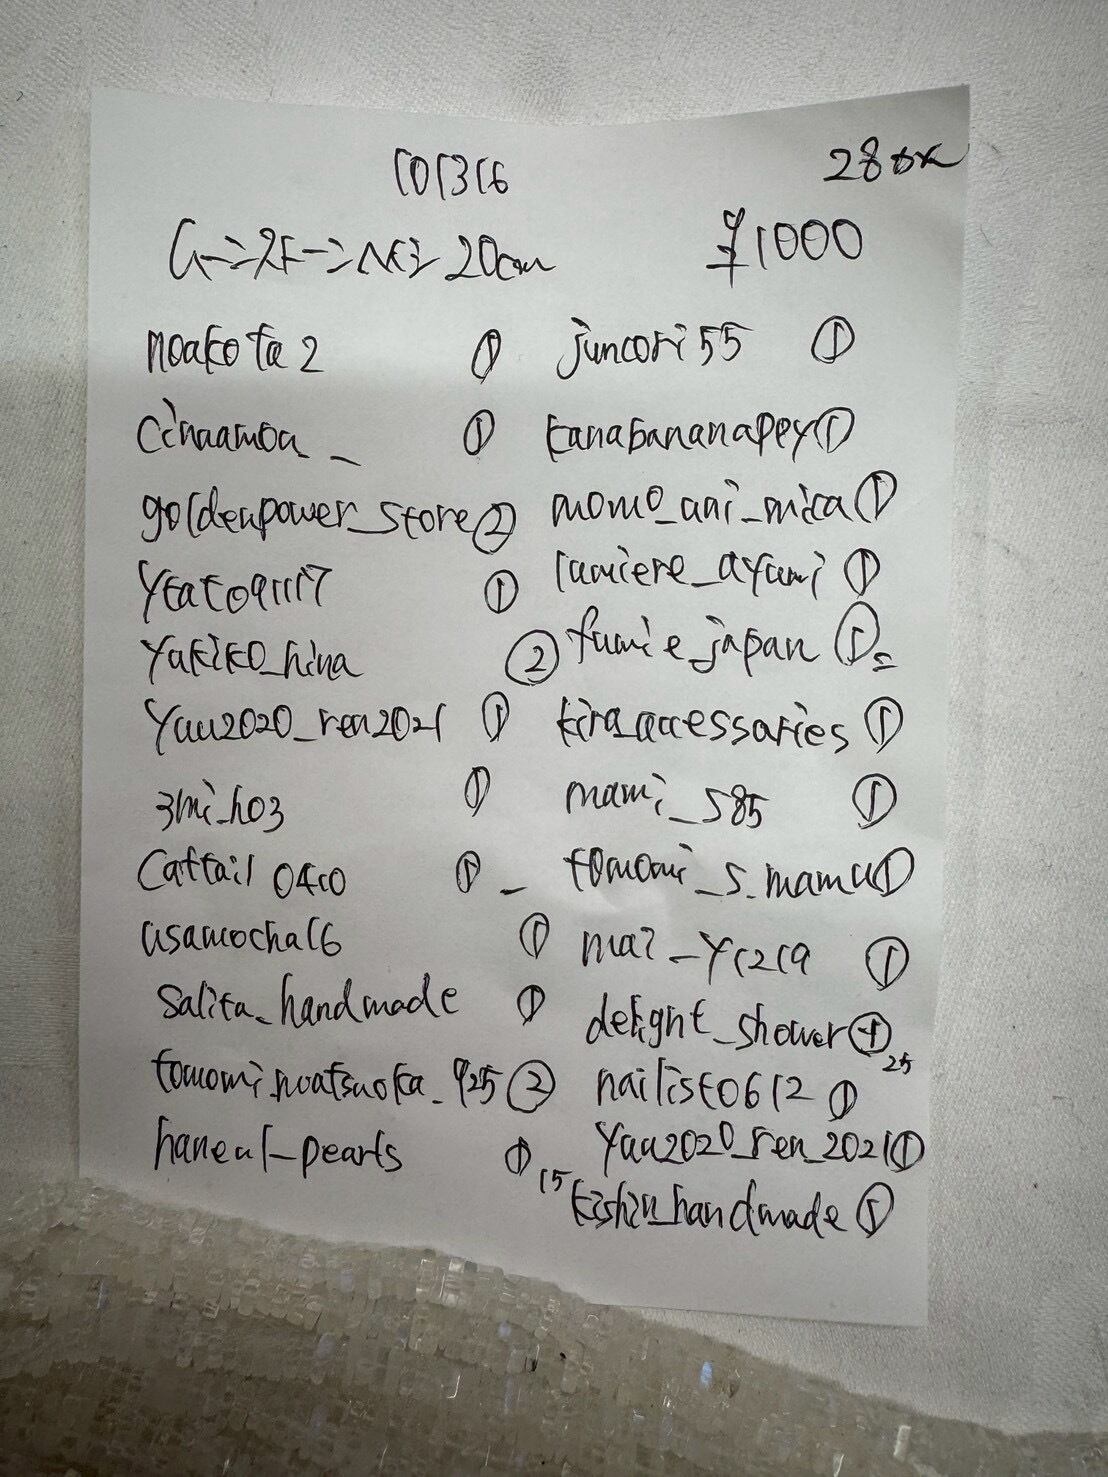 101316
28本
ムーンストーンAB 20cm
¥1000
noakota2 ①
cinnamoa_ ①
goldenpower_store ②
ytato91117 ①
yukiko_hina ②
yuu2020_ren2021 ①
3mi_ho3 ①
cattail0410 ①
usamocha16 ①
salita_handmade ①
tomomi.noatsuota_925 ②
haneul_pearls ①
15
juncori55 ①
kanabananapey ①
momo_ani_mica ①
lumiere_ayumi ①
fumie_japan ①
kira_accessaries ①
mami_585 ①
tomomi_s.mamu ①
mai_y1219 ①
delight_shower ①
25
nailist0612 ①
yuu2020_ren_2021 ①
kishin_handmade ①